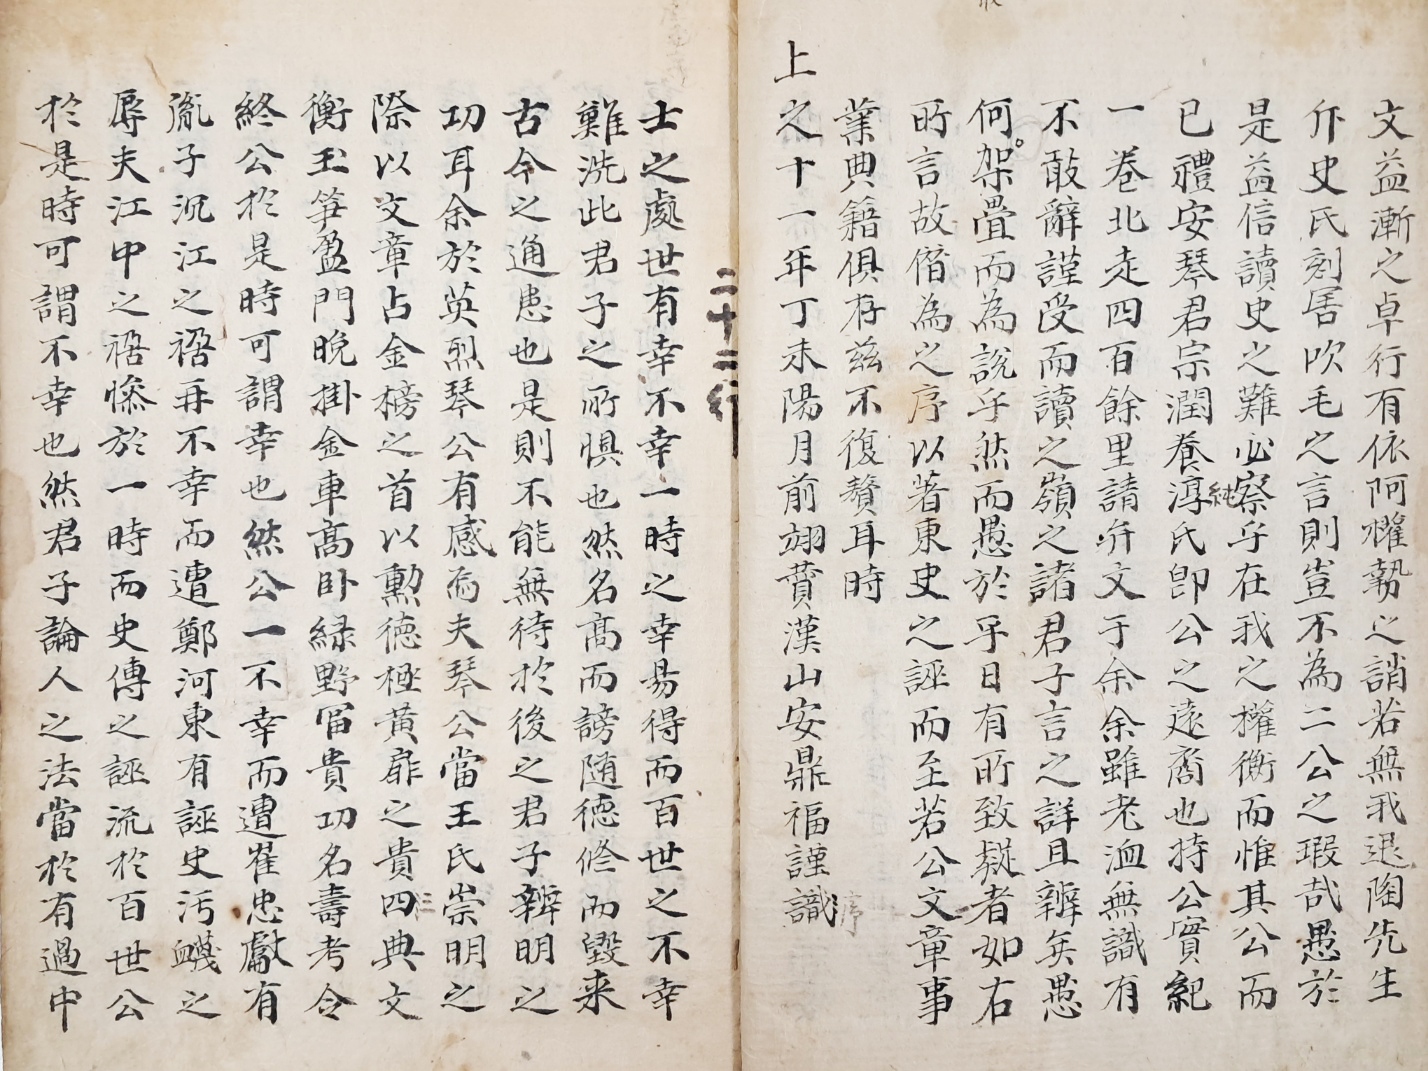 文益漸之卓行有依阿權勢之誚若無我退陶先生
斥史氏刻害吹毛之言則豈不為二公之瑕哉愚於
是益信讀史之難必察乎在我之權衡而惟其公而
已禮安琴君宗潤養淳純氏卽公之遠裔也持公實紀
一卷北走四百餘里請弁文于余余雖老洫無識有
不敢辭謹受而讀之嶺之諸君子言之詳且辨矣愚
何架疊而為說乎然而愚於乎日有所致疑者如右
所言故僭為之序以著東史之誣而至若公文章事
業典籍俱存兹不復贅耳時
上之十一年丁未陽月前翊賛漢山安鼎福謹識
序
二十二行
士之處世有幸不幸一時之幸易得而百世之不幸
難洗此君子之所懼也然名高而謗随德修而毀来
古今之通患也是則不能無待於後之君子辨明之
功耳余於英烈琴公有感焉夫琴公當王氏崇明之
際以文章占金榜之首以勳德極黃扉之貴四典文
衡玉笋盈門晚掛金車高卧緑野富貴功名壽考令
終公於是時可謂幸也然公一不幸而遭崔忠獻有
胤子沉江之禍再不幸而遭鄭河東有誣史汚衊之
辱夫江中之禍慘於一時而史傳之誣流於百世公
於是時可謂不幸也然君子論人之法當於有過中